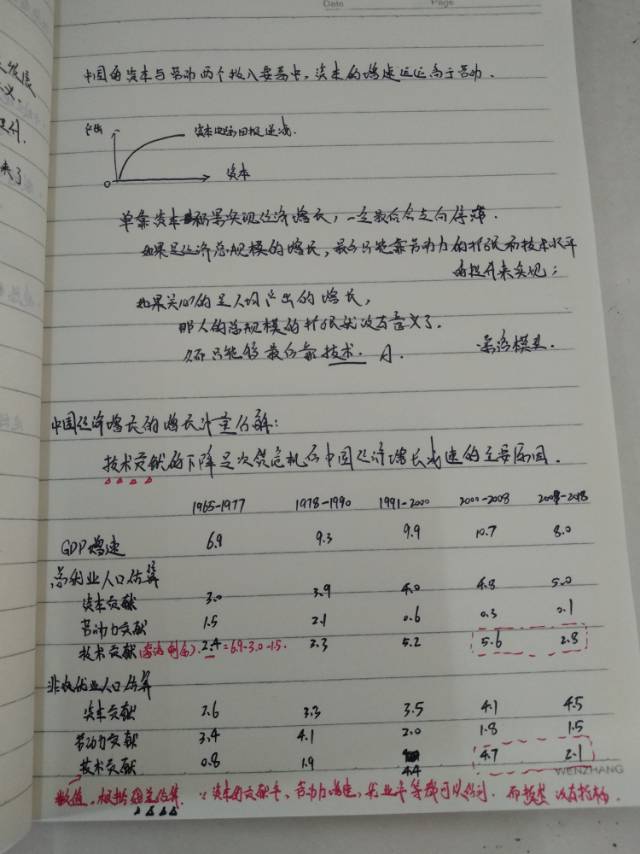 Date Page
发展
义.
提升.
来了
中国的资本与劳动两个投入要素中, 资本的增速远远高于劳动.
产出
资本边际回报递减.
0 资本
单靠资本积累实现经济增长, 一定最后会走向停滞.
如果是经济总规模的增长, 最后只能靠劳动力的扩张和技术水平
的提升来实现;
如果关心的是人均产出的增长,
那人的总规模的扩张就没有意义了.
只能够最后靠技术. A.
索洛模型.
中国经济增长的增长计量分解:
技术贡献的下降是次贷危机后中国经济增长减速的主要原因.
1965-1977 1978-1990 1991-2000 2000-2008 2008-2018
GDP增速 6.9 9.3 9.9 10.7 8.0
总就业人口估算
资本贡献 3.0 3.9 4.0 4.8 5.0
劳动力贡献 1.5 2.1 0.6 0.3 0.1
技术贡献(索洛剩余). 2.4=6.9-3.0-1.5. 3.3 5.2 5.6 2.8
非农就业人口估算
资本贡献 2.6 3.3 3.5 4.1 4.5
劳动力贡献 3.4 4.1 2.0 1.8 1.5
技术贡献 0.8 1.9 4.4 4.7 2.1
WENZHANG
数值, 根据 估算. ∵资本的贡献率、劳动力增速, 就业率等都可以得到. 而 没有指标.